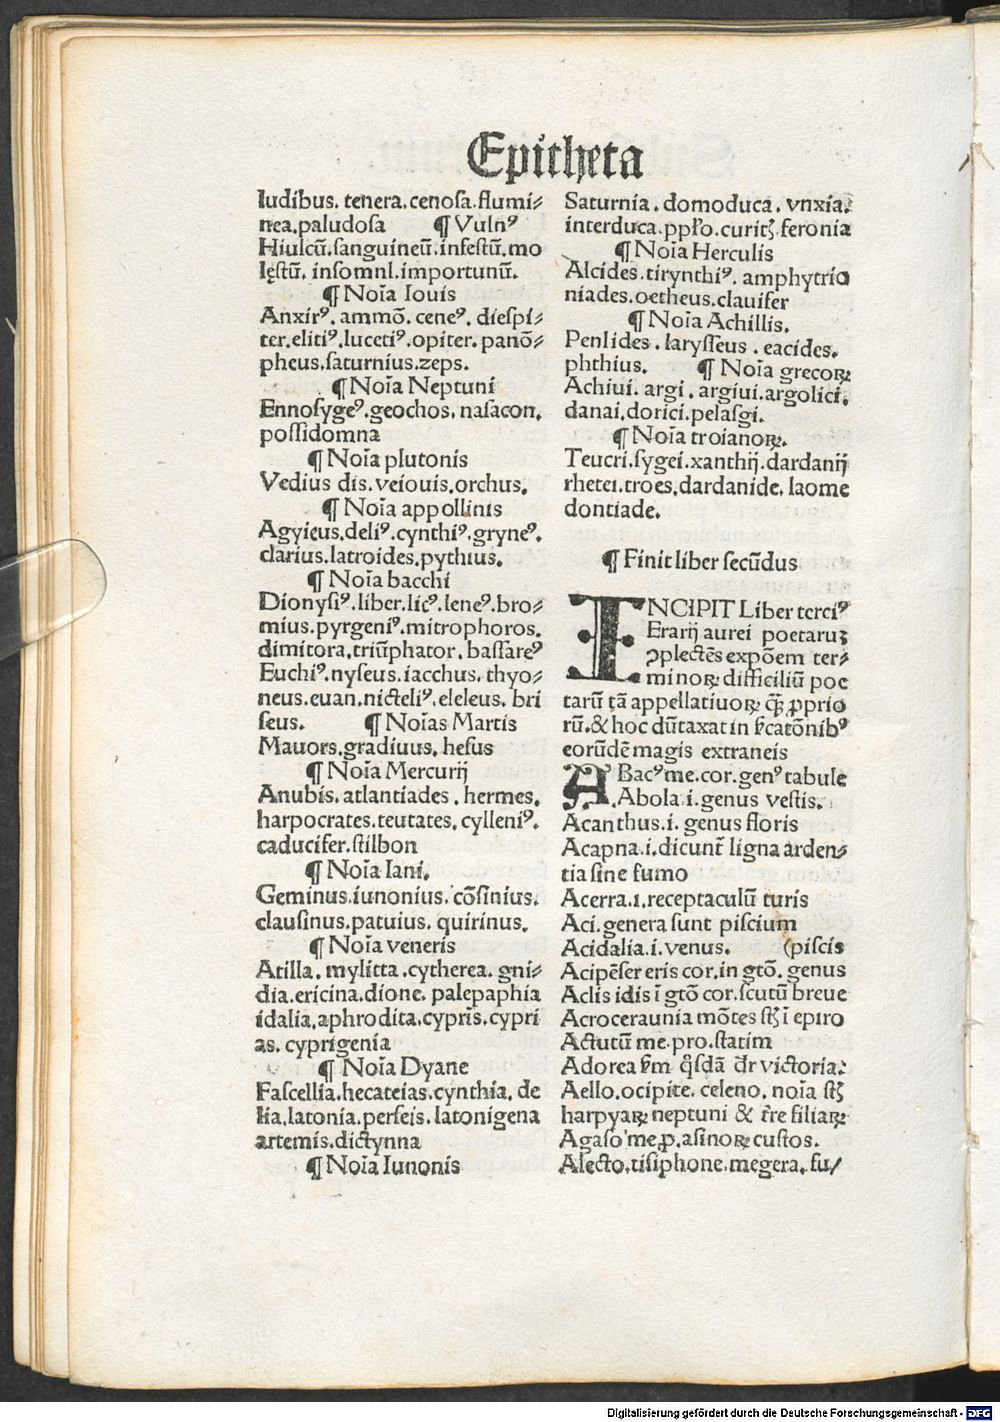 Epitheta
ludibus. tenera. cenosa. flumi⸗
nea. paludosa ¶ Vulnꝰ
Hiulcū. sanguineū. infestū. mo
lęstū. insomnl. importunū.
¶ Noīa Iouis
Anxirꝰ. ammō. ceneꝰ. diespi⸗
ter. elitiꝰ. lucetiꝰ. opiter. panō⸗
pheus. saturnius. zeps.
¶ Noīa Neptuni
Ennosygeꝰ. geochos. nasacon.
possidomna
¶ Noīa plutonis
Vedius dis. veiouis. orchus.
¶ Noīa appollinis
Agyieus. deliꝰ. cynthiꝰ. gryneꝰ.
clarius. latroides. pythius.
¶ Noīa bacchi
Dionysiꝰ. liber. licꝰ. leneꝰ. bro⸗
mius. pyrgeniꝰ. mitrophoros.
dimitora. triūphator. bassareꝰ
Euchiꝰ. nyseus. iacchus. thyo⸗
neus. euan. nicteliꝰ. eleleus. bri
seus. ¶ Noīas Martis
Mauors. gradiuus. hesus
¶ Noīa Mercurij
Anubis. atlantiades. hermes.
harpocrates. teutates. cylleniꝰ.
caducifer. stilbon
¶ Noīa Iani.
Geminus. iunonius. cōsinius.
clausinus. patuius. quirinus.
¶ Noīa veneris
Atilla. mylitta. cytherea. gni⸗
dia. ericina. dione. palepaphia
idalia. aphrodita. cypris. cypri
as. cyprigenia
¶ Noīa Dyane
Fascellia. hecateias. cynthia. de
lia. latonia. perseis. latonigena
artemis. dictynna
¶ Noīa Iunonis
Saturnia. domoduca. vnxia.
interduca. ppło. curitꝫ. feronia
¶ Noīa Herculis
Alcides. tirynthiꝰ. amphytrio
niades. oetheus. clauifer
¶ Noīa Achillis.
Penlides. larysseus. eacides.
phthius. ¶ Noīa grecoꝝ
Achiui. argi. argiui. argolici.
danai. dorici. pelasgi.
¶ Noīa troianoꝝ.
Teucri. sygei. xanthij. dardanij
rhetei. troes. dardanide. laome
dontiade.
¶ Finit liber secūdus
INCIPIT Liber terciꝰ
Erarij aurei poetaruꝫ
ꝯplectēs expōem ter⸗
minoꝝ difficiliū poe
tarū tā appellatiuoꝝ qꝫ̄ ꝓprio
rū. & hoc dūtaxat in v̄catōnibꝰ
eorūdē magis extraneis
ABacꝰ me. cor. genꝰ tabule
Abola. i. genus vestis.
Acanthus. i. genus floris
Acapna. i. dicunt̄ ligna arden⸗
tia sine fumo
Acerra. i. receptaculū turis
Aci. genera sunt piscium
Acidalia. i. venus. (piscis
Acipēser eris cor. in gtō. genus
Aclis idis ī gtō cor. scutū breue
Acroceraunia mōtes stꝫ ī epiro
Actutū me. pro. statim
Adorea v̄m q̄sdā dr̄ victoria.
Aello. ocipite. celeno. noīa stꝫ
harpyaꝝ neptuni & tr̄e filiaꝝ
Agaso me. ꝑ. asinoꝝ custos.
Alecto. tisiphone. megera. fu/
Digitalisierung gefördert durch die Deutsche Forschungsgemeinschaft - DFG